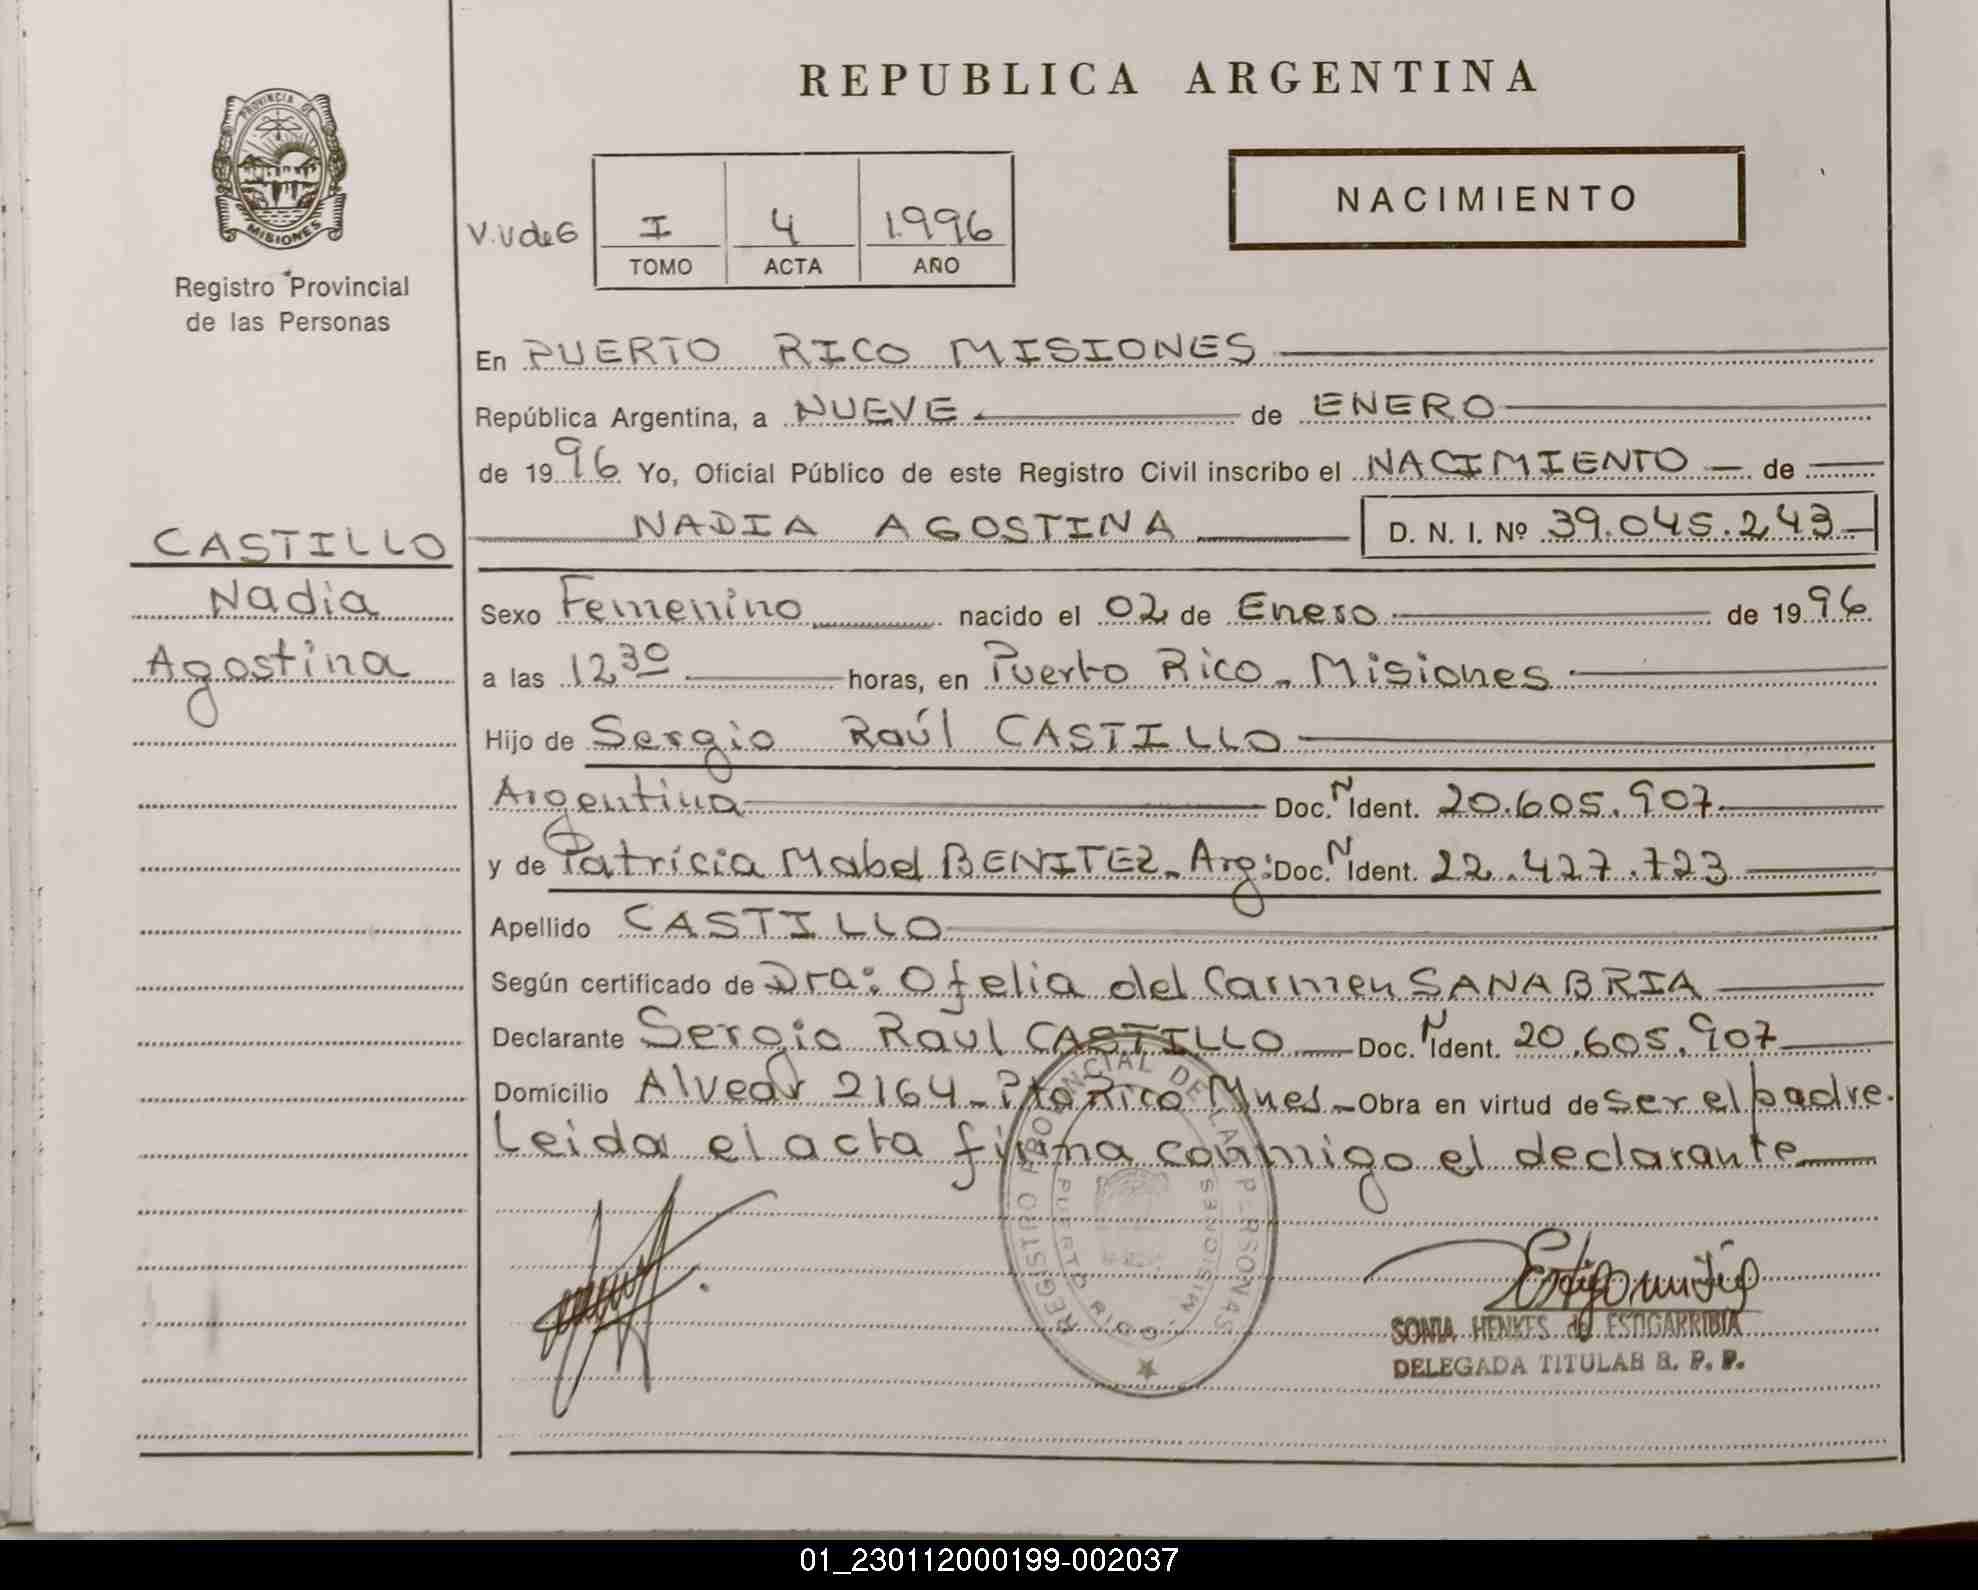 REPUBLICA ARGENTINA
PROVINCIA DE MISIONES
Registro Provincial
de las Personas
NACIMIENTO
V.V de G
I 4 1996
TOMO ACTA AÑO
En PUERTO RICO MISIONES
República Argentina, a NUEVE de ENERO
de 1996 Yo, Oficial Público de este Registro Civil inscribo el NACIMIENTO de
NADIA AGOSTINA D. N. I. Nº 39.045.243
CASTILLO
Nadia
Agostina
Sexo Femenino nacido el 02 de Enero de 1996
a las 12 30 horas, en Puerto Rico - Misiones
Hijo de Sergio Raúl CASTILLO
Argentina Doc. N Ident. 20.605.907
y de Patricia Mabel BENITEZ - Arg: Doc. N Ident. 22.427.723
Apellido CASTILLO
Según certificado de Dra: Ofelia del Carmen SANABRIA
Declarante Sergio Raul CASTILLO Doc. N Ident. 20.605.907
Domicilio Alvear 2164 - Pto Rico Mnes - Obra en virtud de ser el padre.
Leida el acta firma conmigo el declarante
REGISTRO PROVINCIAL DE LAS PERSONAS
PUERTO RICO MISIONES
SONIA HENKES de ESTIGARRIBIA
DELEGADA TITULAR R. P. P.
01_230112000199-002037